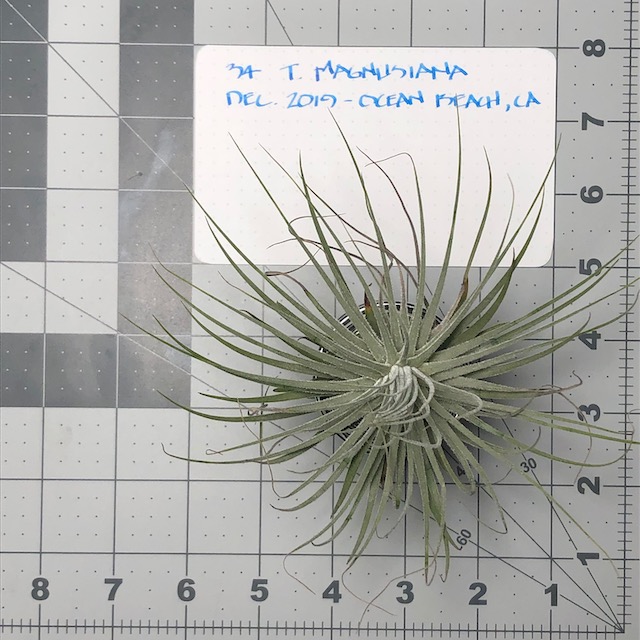 34 T. MAGNUSIANA
DEC. 2019 - OCEAN BEACH, CA
8
7
6
5
4
3
2
1
30
60
8 7 6 5 4 3 2 1